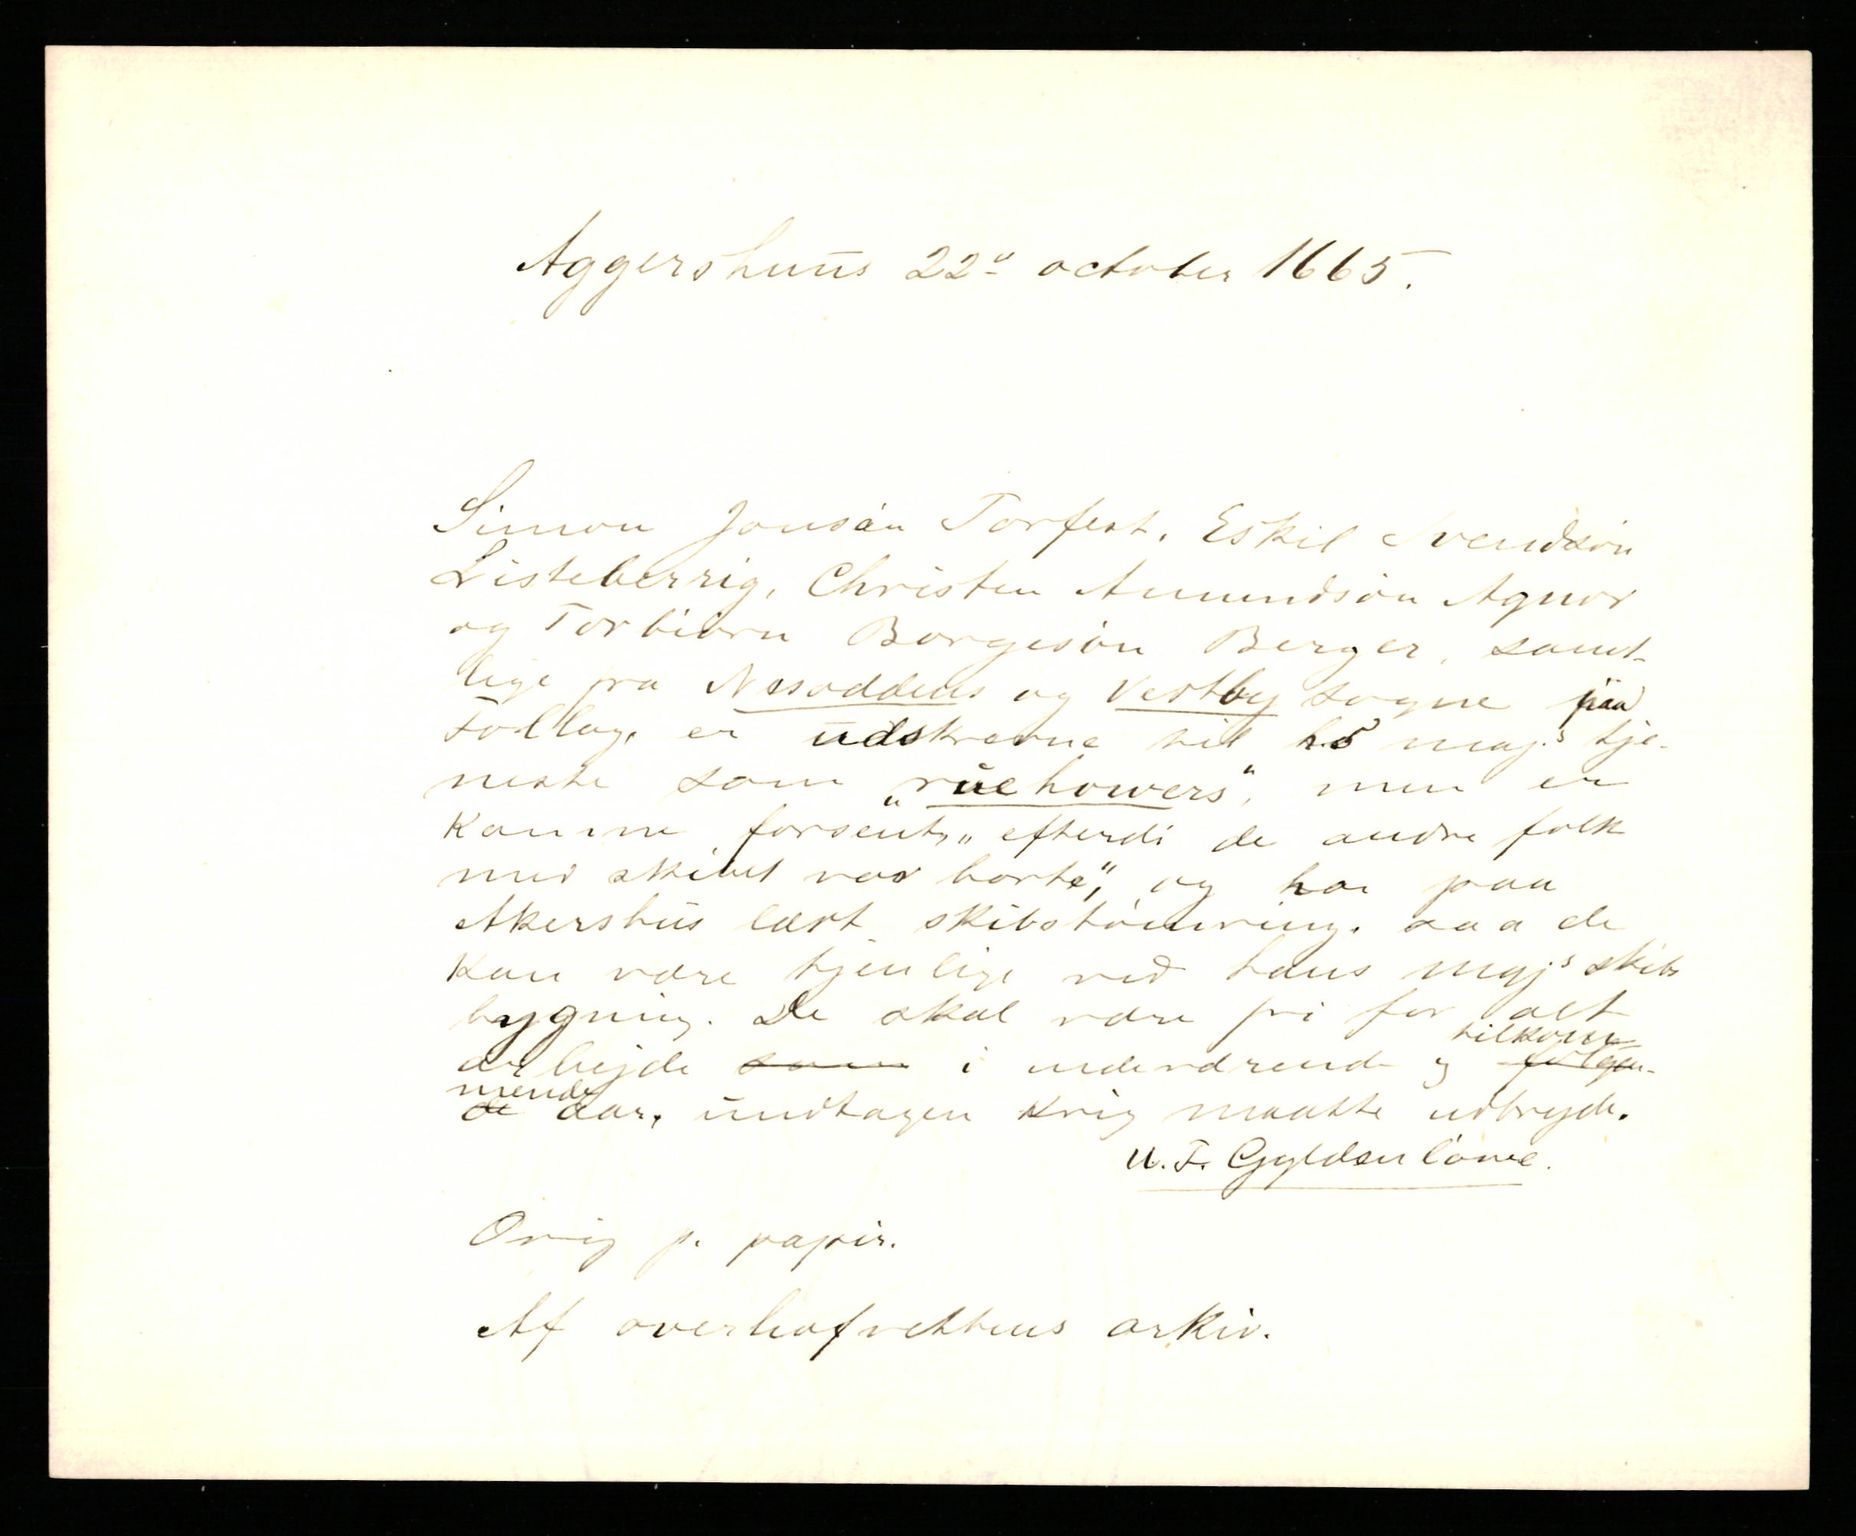 Aggershuus 22de october 1665.
Simon Jonsøn Torfest, Eskil Svendsøn
Listeberrig, Christen Amundsøn Agnor
og Torbiørn Borgesøn Berger, samt-
lige fra Nesoddens og Vestby sogne paa
Follog, er udskrevne til hs maj.s tje-
neste som „ruehowers", men er
komne forsent, „efterdi de andre folk
med skibet var borte", og har paa
Akershus lært skibstømring, saa de
kan være tjenlige ved hans maj.s skibs
bygning. De skal være fri for alt
arbejde som i indeværende og følgen- tilkom-
de mende aar, undtagen krig maatte udbryde.
U. F. Gyldenløwe.
Orig p. papir.
Af overhofrettens arkiv.